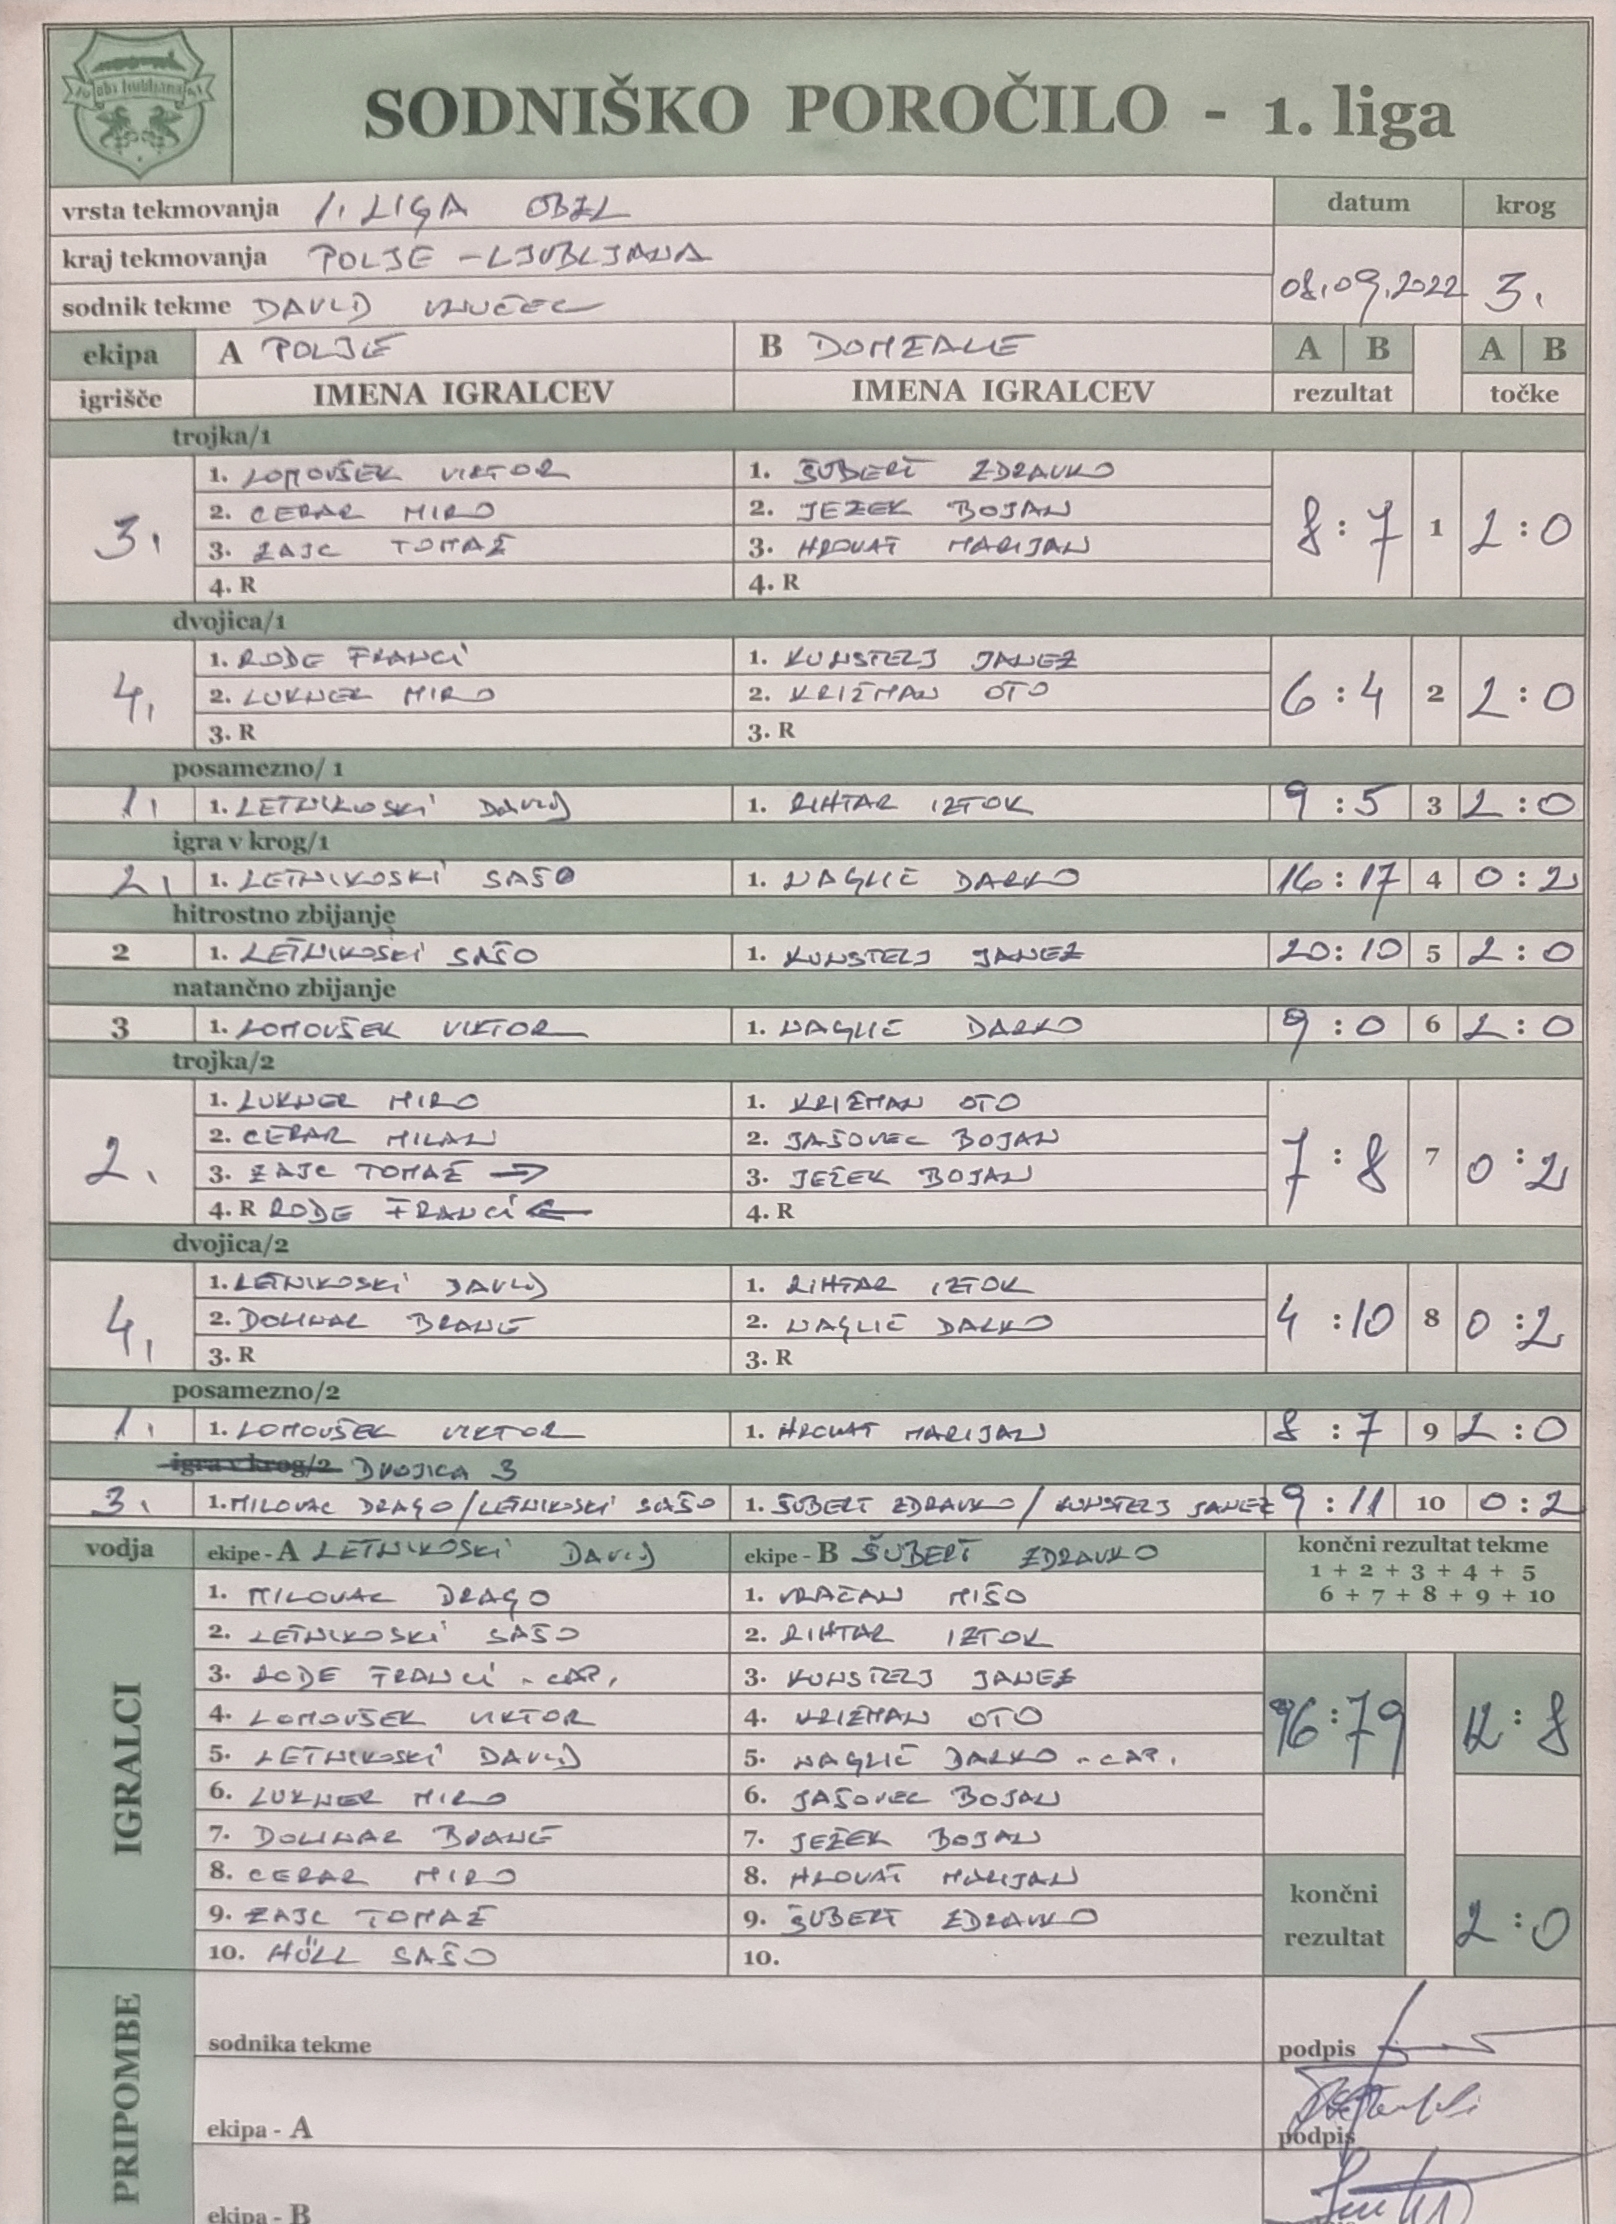 obz ljubljana
SODNIŠKO POROČILO - 1. liga
vrsta tekmovanja 1. LIGA OBZL datum krog
kraj tekmovanja POLJE - LJUBLJANA
sodnik tekme DAVID 08.09.2022 3.
ekipa A POLJE B DOMŽALE A B A B
igrišče IMENA IGRALCEV IMENA IGRALCEV rezultat točke
trojka/1
3. 1. LOMOVŠEK VIKTOR 1. ŠUBERT ZDRAVKO 8 : 7 1 2 : 0
2. CERAR MIRO 2. JEZEK BOJAN
3. ZAJC TOMAŽ 3. HROVAT MARIJAN
4. R 4. R
dvojica/1
4. 1. RODE FRANCI 1. KUNSTELJ JANEZ 6 : 4 2 2 : 0
2. LUKNER MIRO 2. KRIŽMAN OTO
3. R 3. R
posamezno/ 1
1. 1. LETNIKOSKI DAVID 1. RIHTAR IZTOK 9 : 5 3 2 : 0
igra v krog/1
2. 1. LETNIKOSKI SAŠO 1. NAGLIČ DARKO 16 : 17 4 0 : 2
hitrostno zbijanje
2 1. LETNIKOSKI SAŠO 1. KUNSTELJ JANEZ 20 : 10 5 2 : 0
natančno zbijanje
3 1. LOMOVŠEK VIKTOR 1. NAGLIČ DARKO 9 : 0 6 2 : 0
trojka/2
2. 1. LUKNER MIRO 1. KRIŽMAN OTO 7 : 8 7 0 : 2
2. CERAR MILAN 2. JAŠOVEC BOJAN
3. ZAJC TOMAŽ → 3. JEŽEK BOJAN
4. R RODE FRANCI ← 4. R
dvojica/2
4. 1. LETNIKOSKI DAVID 1. RIHTAR IZTOK 4 : 10 8 0 : 2
2. DOLINAR BRANE 2. NAGLIČ DARKO
3. R 3. R
posamezno/2
1. 1. LOMOVŠEK VIKTOR 1. HROVAT MARIJAN 8 : 7 9 2 : 0
igra v krog/2 DVOJICA 3
3. 1. MILOVAC DRAGO/LETNIKOSKI SAŠO 1. ŠUBERT ZDRAVKO / KUNSTELJ JANEZ 9 : 11 10 0 : 2
vodja ekipe - A LETNIKOSKI DAVID ekipe - B ŠUBERT ZDRAVKO končni rezultat tekme
1 + 2 + 3 + 4 + 5
6 + 7 + 8 + 9 + 10
IGRALCI
1. MILOVAC DRAGO 1. VRAČAN MIŠO
2. LETNIKOSKI SAŠO 2. RIHTAR IZTOK
3. RODE FRANCI - CAP. 3. KUNSTELJ JANEZ
4. LOMOVŠEK VIKTOR 4. KRIŽMAN OTO 96 : 79 12 : 8
5. LETNIKOSKI DAVID 5. NAGLIČ DARKO - CAP.
6. LUKNER MIRO 6. JAŠOVEC BOJAN
7. DOLINAR BRANE 7. JEŽEK BOJAN
8. CERAR MIRO 8. HROVAT MARIJAN
9. ZAJC TOMAŽ 9. ŠUBERT ZDRAVKO
10. HÖLL SAŠO 10.
končni rezultat 2 : 0
PRIPOMBE
sodnika tekme podpis
ekipa - A podpis
ekipa - B